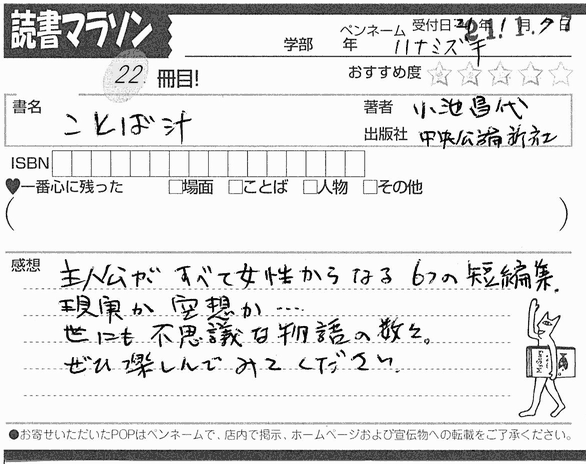 読書マラソン
22 冊目!
学部 年
ペンネーム ハナミズキ
受付日 21年 1月 7日
おすすめ度 ☆☆☆☆☆
書名 ことば汁
著者 小池昌代
出版社 中央公論新社
ISBN
♥一番心に残った □場面 □ことば □人物 □その他
( )
感想 主人公が すべて女性からなる 6つの短編集。
現実か 空想か…
世にも 不思議な物語の数々。
ぜひ 楽しんで みて ください。
Mystery
●お寄せいただいたPOPはペンネームで、店内で掲示、ホームページおよび宣伝物への転載をご了承ください。